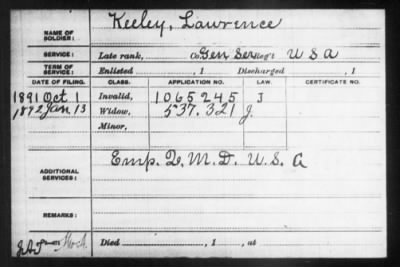 NAME OF SOLDIER: Keeley, Lawrence
SERVICE: Late rank, Co. Gen Ser Reg't U S A
TERM OF SERVICE: Enlisted , 1 Discharged , 1
DATE OF FILING. CLASS. APPLICATION NO. LAW. CERTIFICATE NO.
1891 Oct 1 Invalid, 1065245 J
1892 Jan 13 Widow, 537.321 J.
Minor,
ADDITIONAL SERVICES: Emp. Q. M. D. U. S. A
REMARKS:
Died , 1 , at